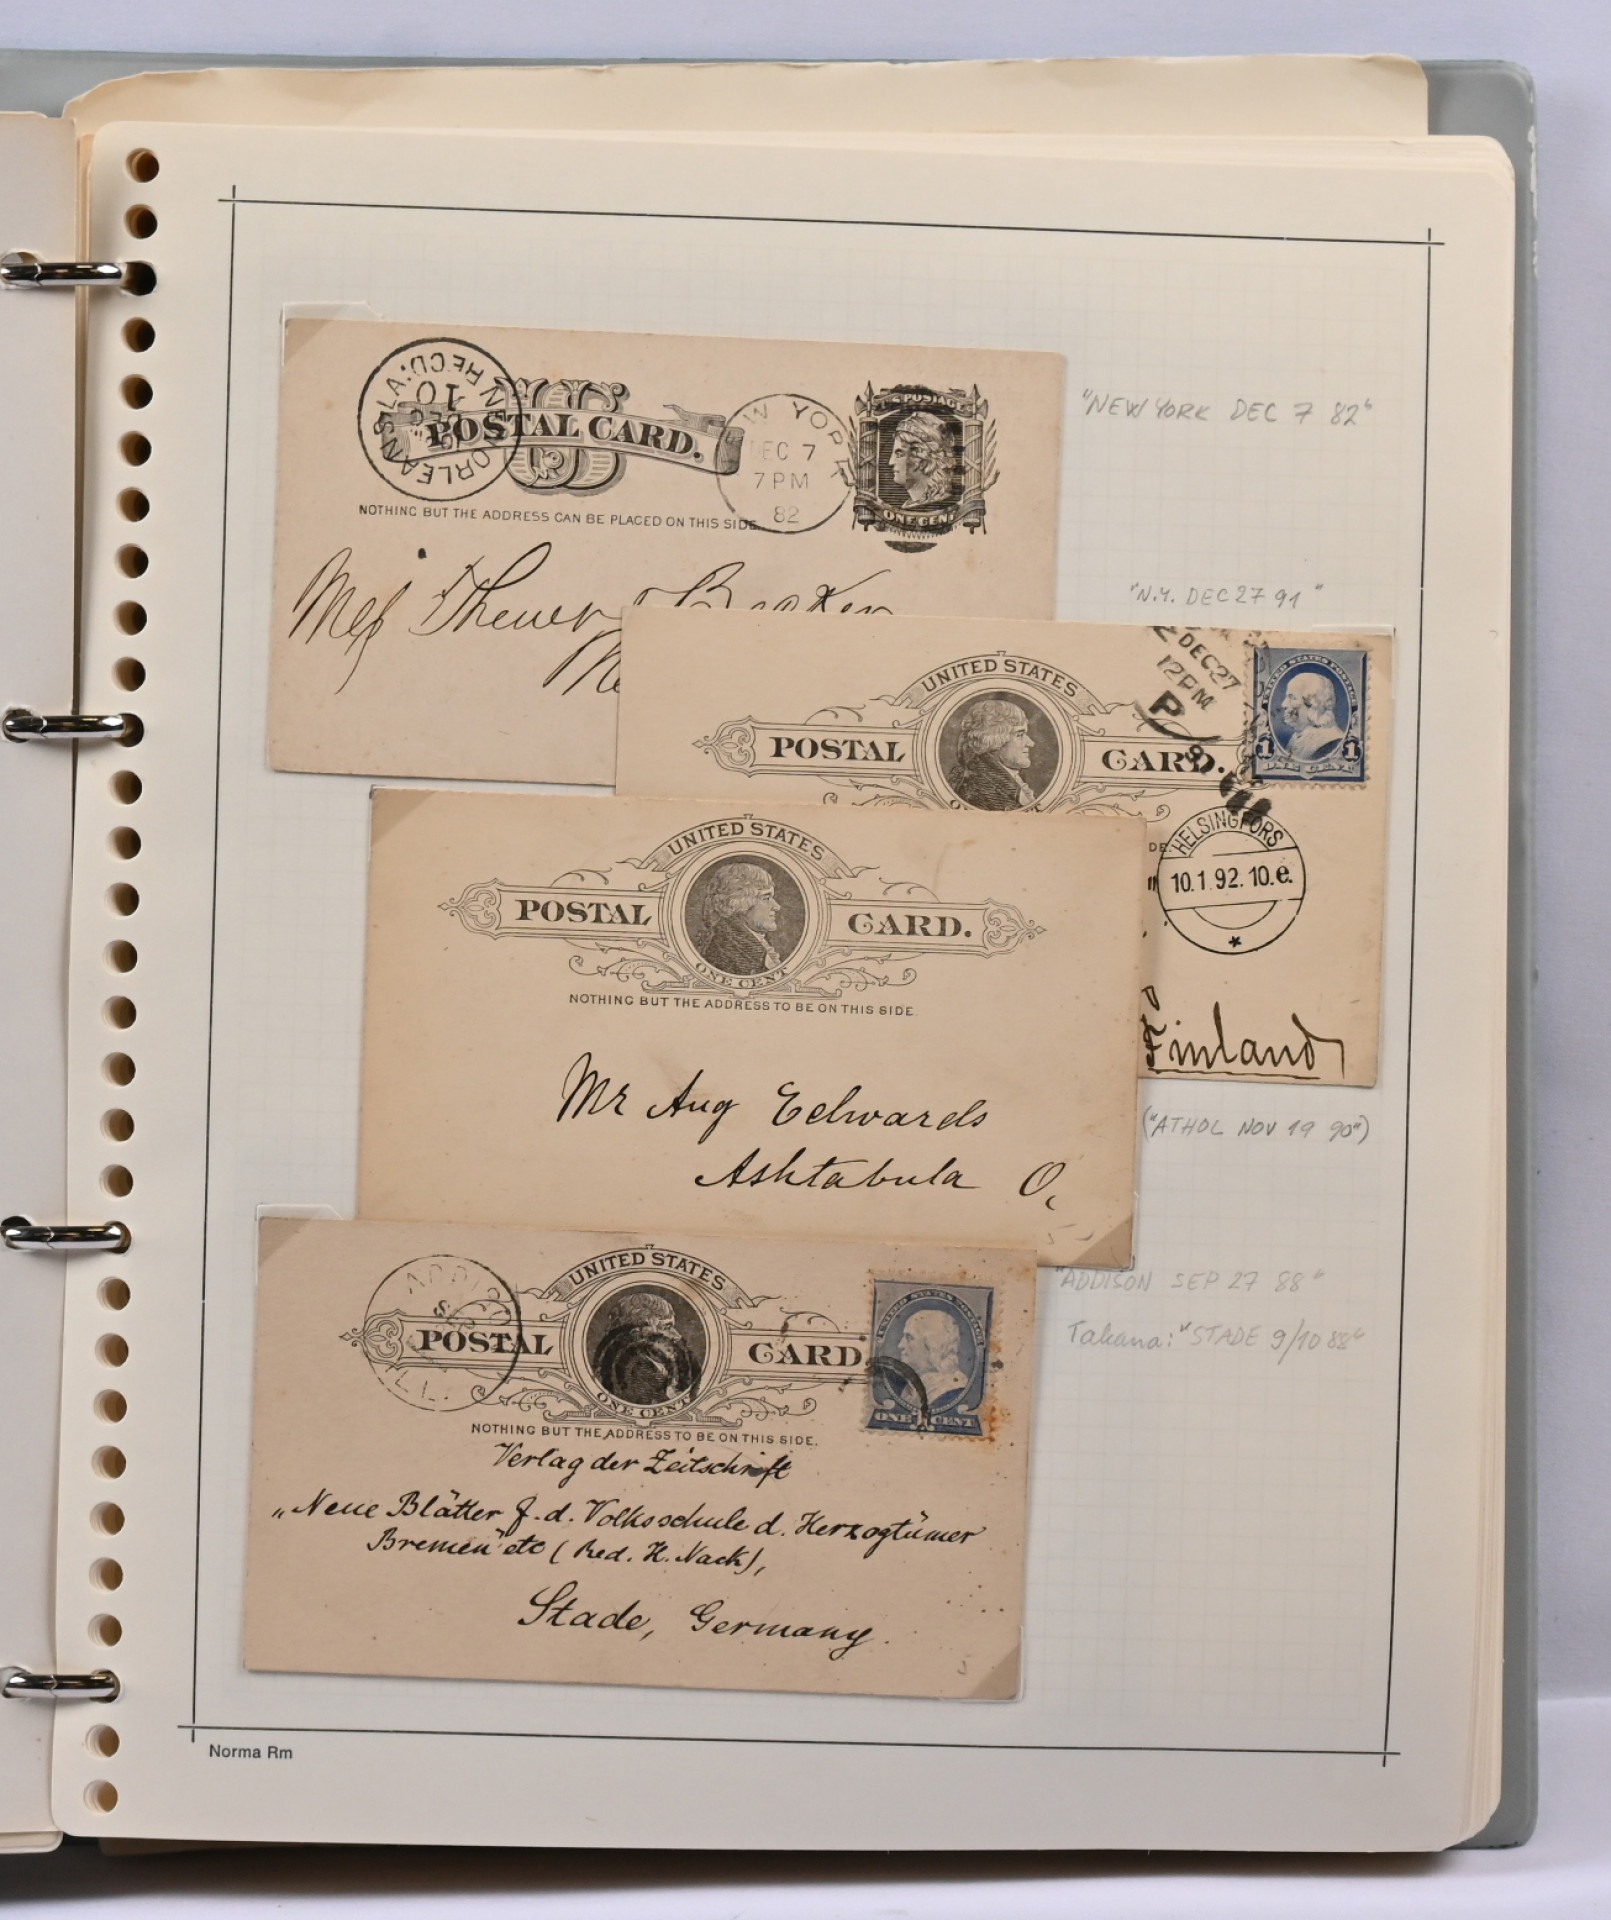 N. ORLEANS LA. REC'D.
DEC
10
"POSTAL CARD."
NOTHING BUT THE ADDRESS CAN BE PLACED ON THIS SIDE.
W YORK
DEC 7
7 PM
82
U.S. POSTAGE
ONE CENT
"NEW YORK DEC 7 82"
"N.Y. DEC 27 91"
DEC 27
12PM
P
UNITED STATES
POSTAL CARD.
UNITED STATES POSTAGE
1 1
ONE CENT
HELSINGFORS
10.1.92.10.e.
Finland
UNITED STATES
POSTAL CARD.
ONE CENT
NOTHING BUT THE ADDRESS TO BE ON THIS SIDE.
Mr Aug Edwards
Ashtabula O.
("ATHOL NOV 19 90")
"ADDISON SEP 27 88"
Takana: "STADE 9/10 88"
ADDISON
ILL.
UNITED STATES
POSTAL CARD
ONE CENT
UNITED STATES POSTAGE
ONE 1 CENT
NOTHING BUT THE ADDRESS TO BE ON THIS SIDE.
Verlag der Zeitschrift
„Neue Blätter f. d. Volksschule d. Herzogtümer
Bremen" etc (Red. H. Nack),
Stade, Germany.
Norma Rm